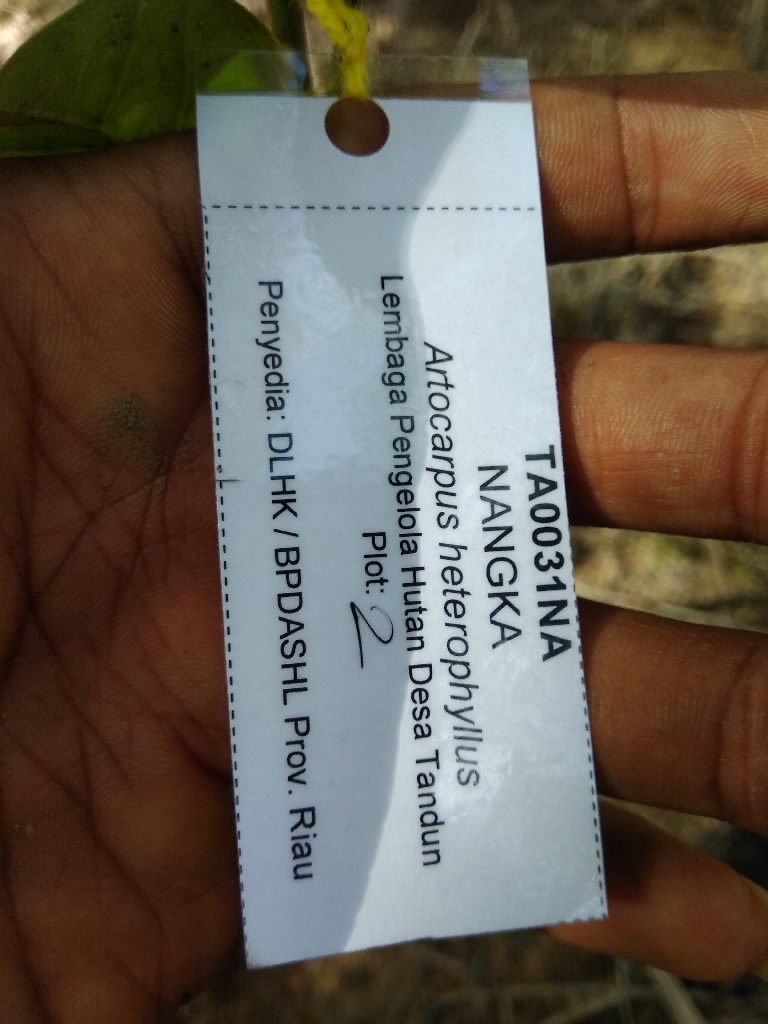 TA0031NA
NANGKA
Artocarpus heterophyllus
Lembaga Pengelola Hutan Desa Tandun
Plot: 2
Penyedia: DLHK / BPDASHL Prov. Riau